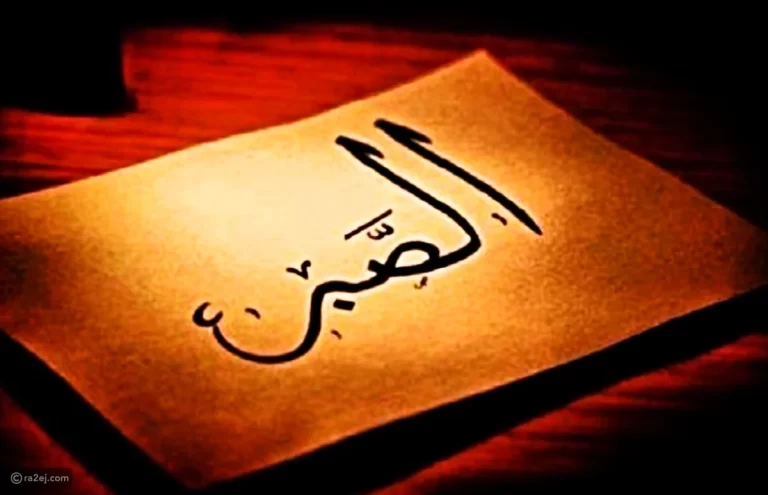 الصَّبر
©ra2ej.com